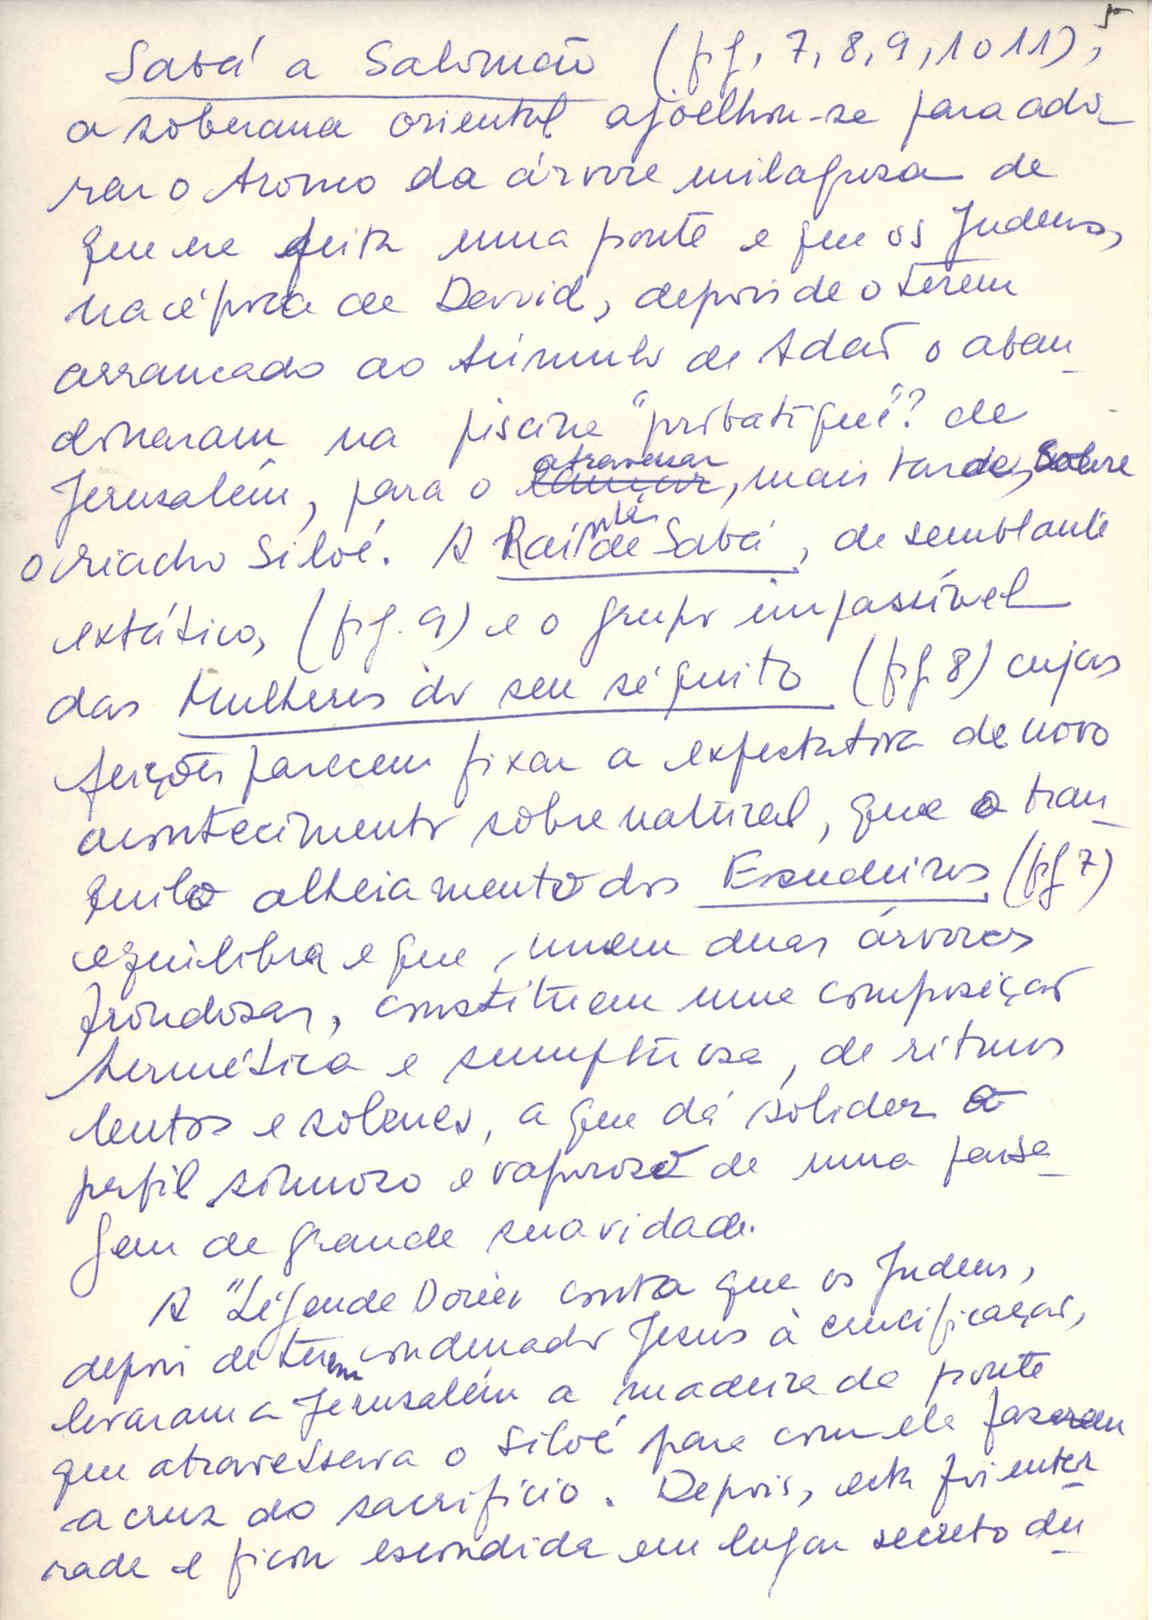 Sabá a Salomão (fig. 7, 8, 9, 10 11);
a soberana oriental ajoelhou-se para ado-
rar o tronco da árvore milagrosa de
que era feita uma ponte e que os Judeus,
na época de David, depois de o terem
arrancado ao túmulo de Adão o aban-
donaram na piscina "probatique"? de
Jerusalém, para o lançar atravessar, mais tarde, sobre
o riacho Siloé. A Raínha de Sabá, de semblante
extático, (fig. 9) e o grupo impassível
das Mulheres do seu séquito (fig 8) cujas
feições parecem fixar a expectativa de novo
acontecimento sobrenatural, que o tran-
quilo alheiamento dos Escudeiros (fig 7)
equilibra e que, unem duas árvores
frondosas, constituem uma composição
hermética e sumptuosa, de ritmos
lentos e solenes, a que dá solidez o
perfil sinuoso e vaporoso de uma paisa-
gem de grande suavidade.
A "Légende Dorée" conta que os Judeus,
depois de terem condenado Jesus à crucificação,
levaram a Jerusalém a madeira da ponte
que atravessava o Siloé para com ela fazerem
a cruz do sacrifício. Depois, esta foi enter-
rada e ficou escondida em lugar secreto du-